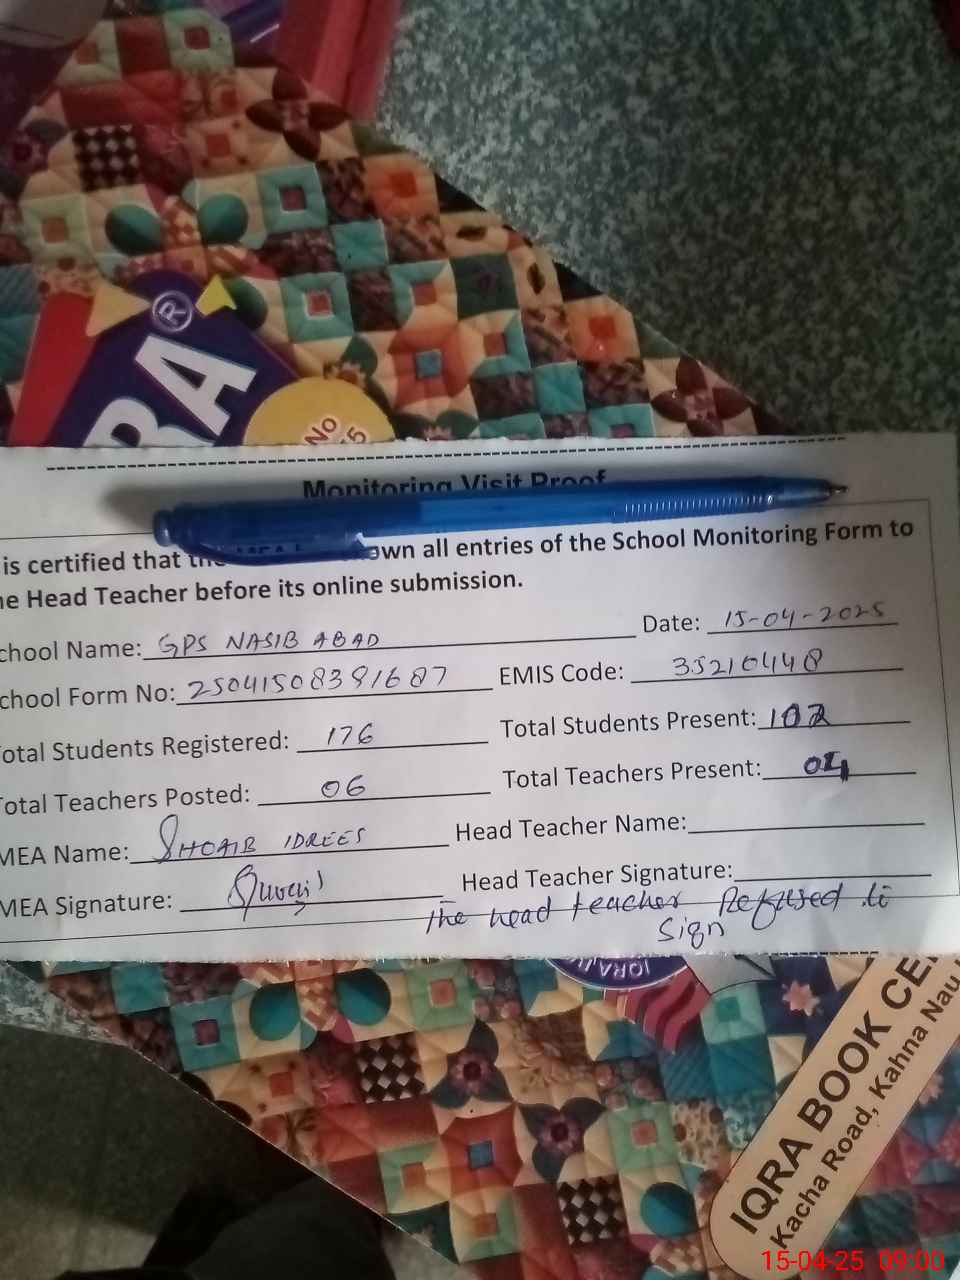 ®
RA
No
55
Monitoring Visit Proof
is certified that the own all entries of the School Monitoring Form to
he Head Teacher before its online submission.
chool Name: GPS NASIB ABAD Date: 15-04-2025
chool Form No: 25041508391687 EMIS Code: 35210448
otal Students Registered: 176 Total Students Present: 102
otal Teachers Posted: 06 Total Teachers Present: 04
MEA Name: SHOAIB IDREES Head Teacher Name:
MEA Signature: Head Teacher Signature:
The head teacher Refused to
sign
IQRA
IQRA BOOK CE
Kacha Road, Kahna Nau
15-04-25 09:00